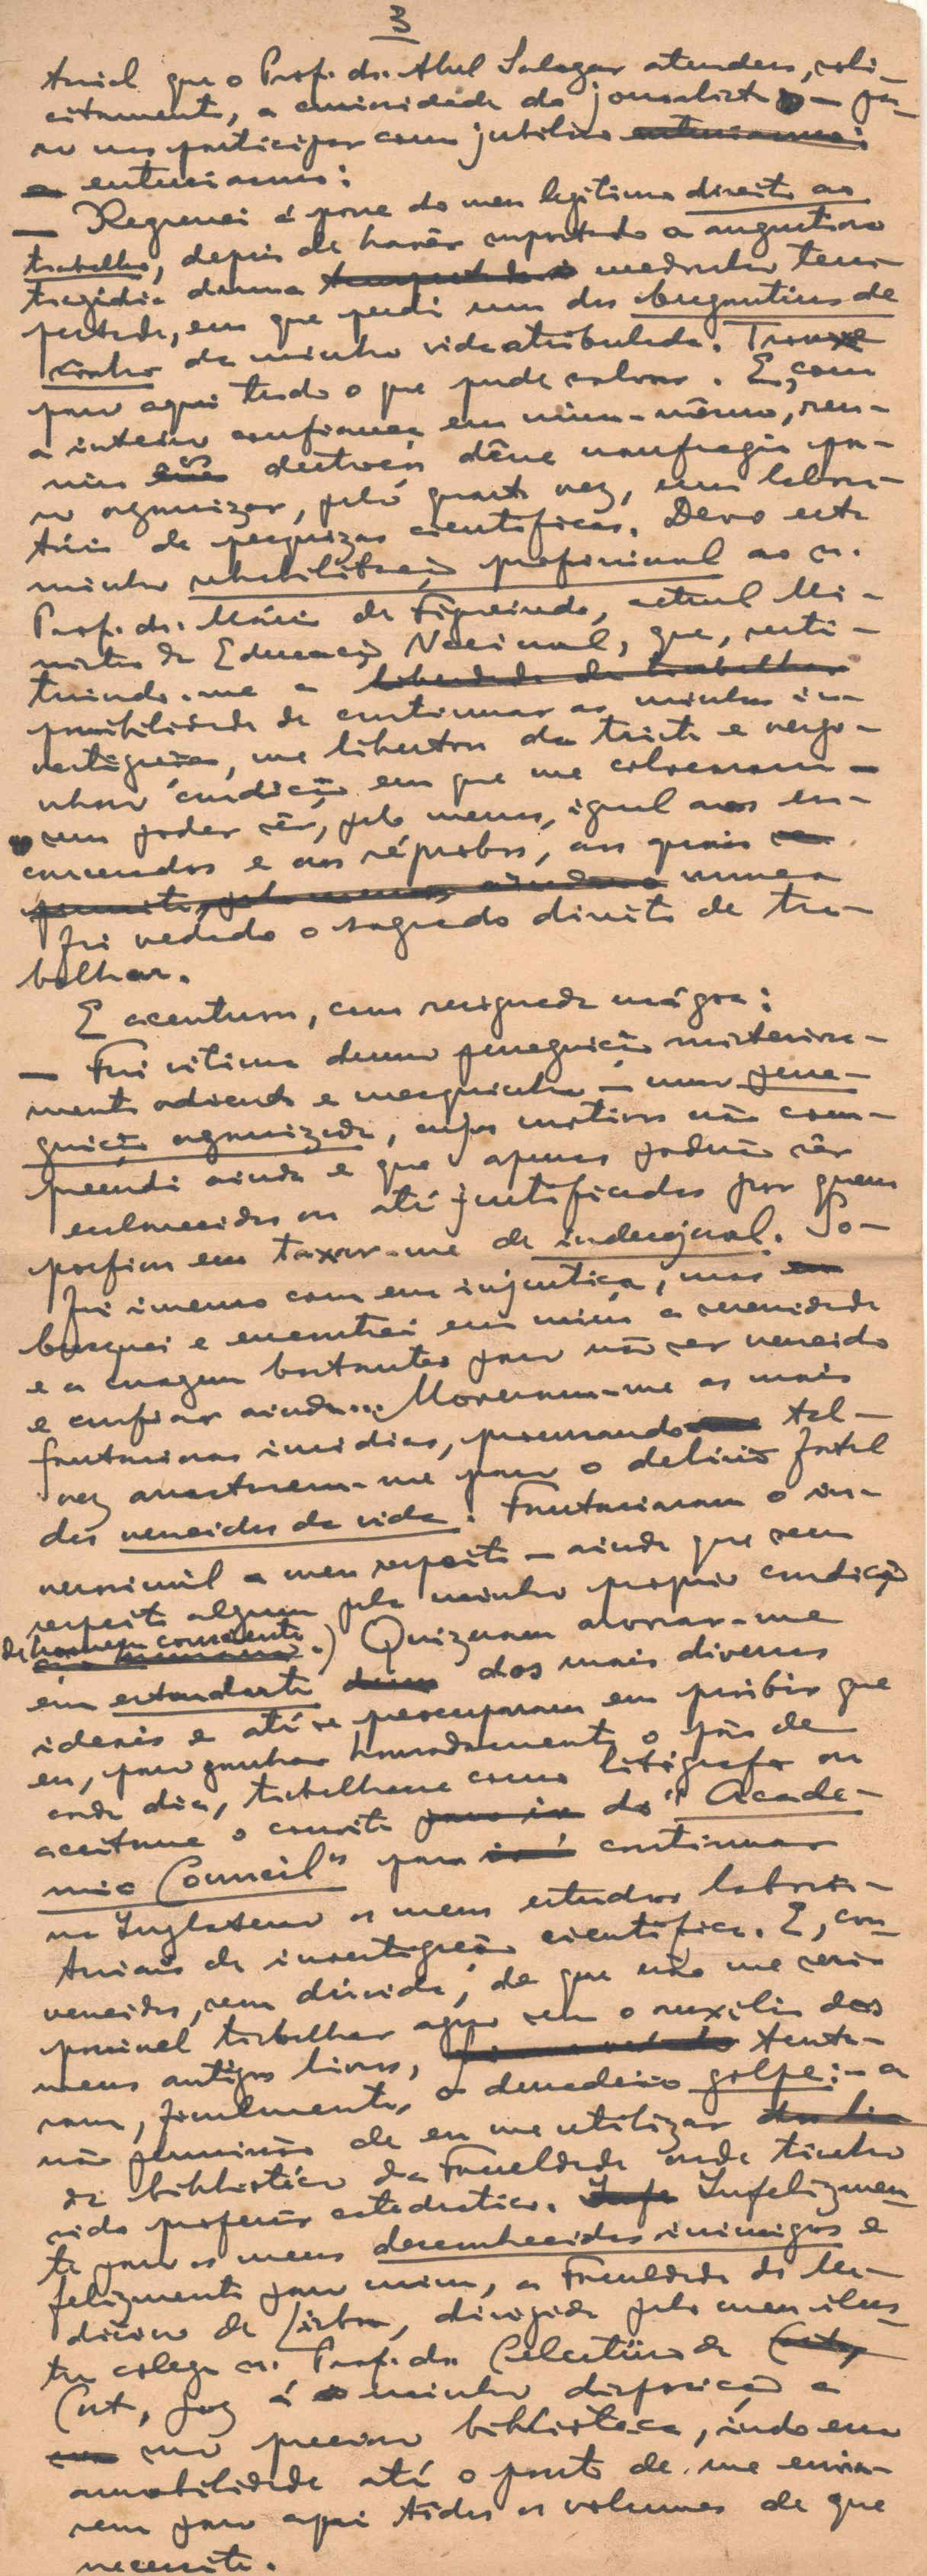 3
torial que o Prof. dr. Abel Salazar atendeu, soli-
citamente, a curiosidade do jornalista — pa-
ra nos participar com jubiloso entusiasmo:
entusiasmo:
— Regressei á posse do meu legítimo direito ao
trabalho, depois de havêr suportado a angustiosa
tragédia duma medonha tem-
pestade, em que perdi um dos bergantins de
sonho da minha vida atribulada. Trouxe
para aqui tudo o que pude salvar. E, com
a inteira confiança em mim-mêsmo, reu-
ni os destroços dêsse naufragio pa-
ra organizar, pela quarta vez, um labora-
tório de pesquizas cientificas. Devo esta
minha rehabilitação profissional ao sr.
Prof. dr. Mário de Figueiredo, actual Mi-
nistro da Educação Nacional, que, resti-
tuindo-me a liberdade de trabalhar
possibilidade de continuar as minhas in-
vestigações, me libertou da triste e vergo-
nhosa condição em que me colocaram —
sem poder sêr, pelo menos, igual aos en-
carcerados e aos réprobos, aos quais
permite, pelo menos, nunca
foi vedado o sagrado direito de tra-
balhar.
E acentuou, com resignada mágoa:
— Fui vitima duma perseguição misteriosa-
mente odienta e mesquinha — uma perse-
guição organizada, cujos motivos não com-
preendi ainda e que apenas poderão sêr
esclarecidos ou até justificados por quem
porfiou em taxar-me de indesejavel. So-
fri imenso com essa injustiça, mas
busquei e encontrei em mim a serenidade
e a coragem bastantes para não ser vencido
e confiar ainda... Moveram-me as mais
fantasiosas insidias, procurando tal-
vez arrastarem-me para o delírio fatal
dos vencidos da vida. Fantasiaram o in-
verosimil a meu respeito — ainda que sem
respeito algum pela minha propria condição
de homem consciente.) Quizeram arvorar-me
em estandarte dos mais diversos
ideais e até se preocuparam em proibir que
eu, para ganhar honradamente o pão de
cada dia, trabalhasse como litógrafo ou
aceitasse o convite para ir do "Acade-
mic Council" para continuar
na Inglaterra os meus estudos labora-
toriais de investigação cientifica. E, con-
vencidos, sem dúvida, de que não me seria
possivel trabalhar agora sem o auxilio dos
meus antigos livros, tenta-
ram, finalmente, o derradeiro golpe: — a
não permissão de eu me utilizar
da biblioteca da Faculdade onde tinha
sido professor catedratico. Infelizmen-
te para os meus desconhecidos inimigos e
felizmente para mim, a Faculdade de Me-
dicina de Lisboa, dirigida pelo meu ilus-
tre colega sr. Prof. dr. Celestino da
Costa, poz á minha disposição a
sua preciosa biblioteca, indo essa
amabilidade até o ponto de me envia-
rem para aqui todos os volumes de que
necessito.